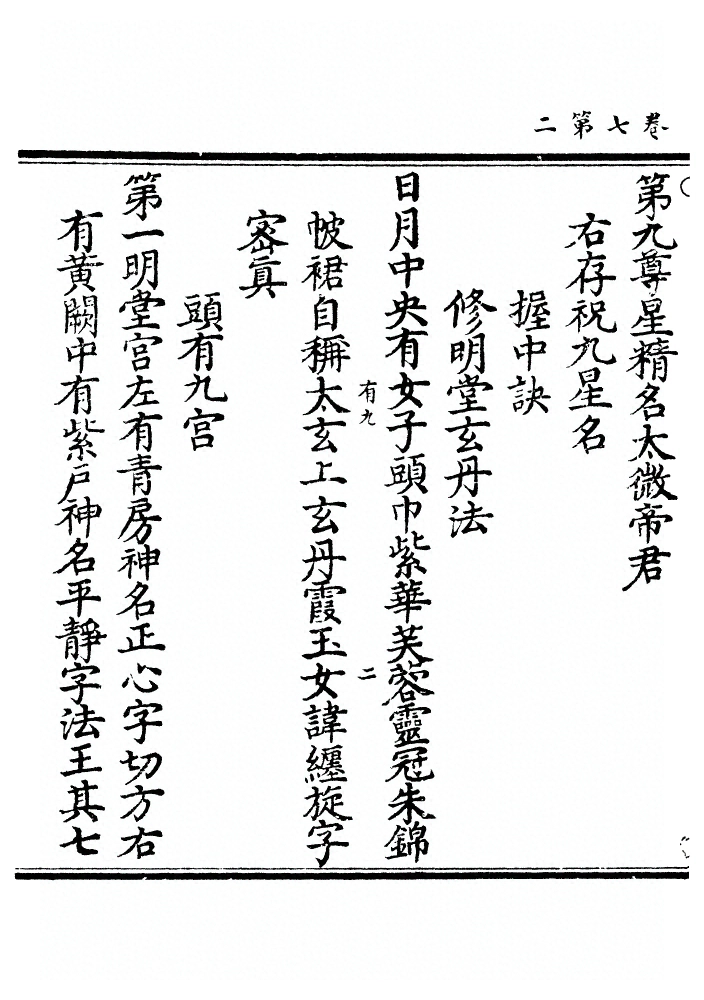 卷七第二
第九尊星精名太微帝君
右存祝九星名
握中訣
修明堂玄丹法
日月中央有女子頭巾紫華芙蓉靈冠朱錦
有九
二
帔裙自稱太玄上玄丹霞玉女諱纏旋字
密眞
頭有九宮
第一明堂宮左有青房神名正心字切方右
有黃闕中有紫戶神名平靜字法王其七